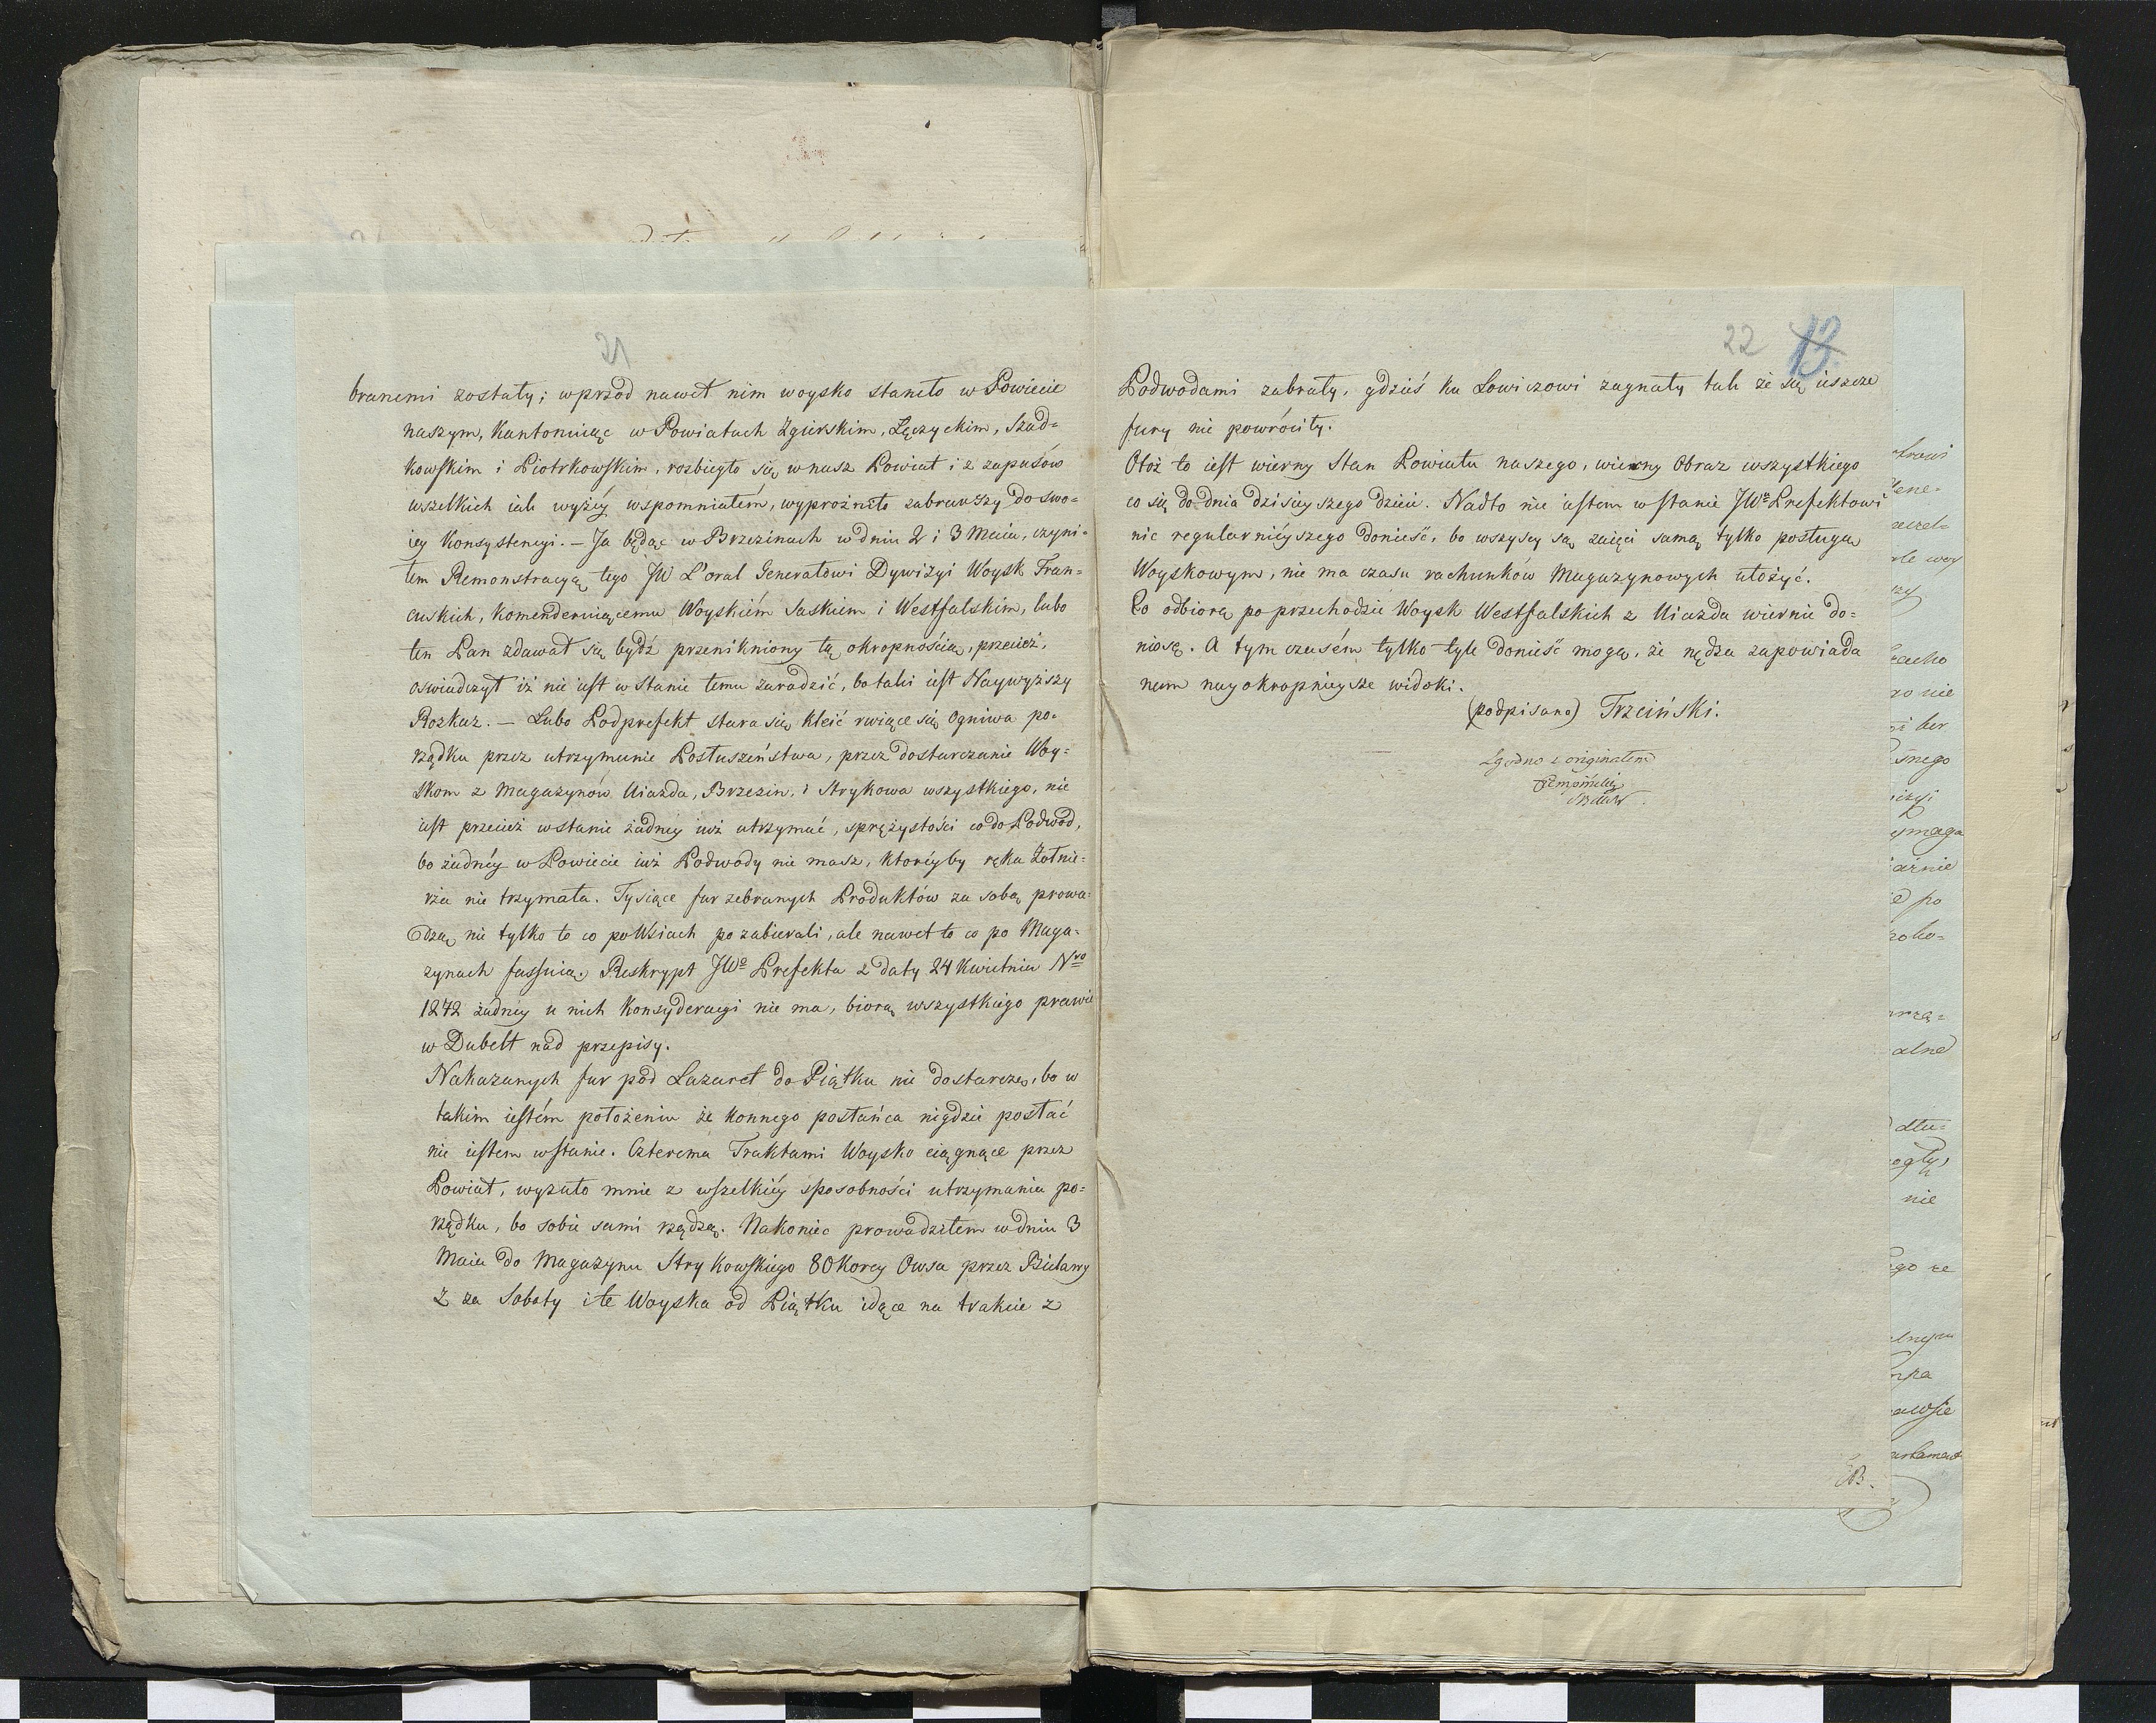 21
branemi zostały; wprzod nawet nim woysko staneło w Powiecie
naszym, Kantoniuiąc w Powiatach Zgierskim, Łęczyckim, Szad=
kowskim i Piotrkowskim, rozbiegło się w nasz Powiat i z zapasów
wszelkich iak wyżéy wspomniałém, wyprożniło zabrawszy do swo=
iey Konsystencyi. — Ja będąc w Brzezinach w dniu 2 i 3 Maia, czyni=
łem Remonstracyą tego JW L'oral Generałowi Dywizyi Woysk Fran=
cuskich, Komenderuiącemu Woyskiém Saskiem i Westfalskim, lubo
ten Pan zdawał się bydź przenikniony tą okropnością, przecież,
oswiadczył iż nie iest w stanie temu zaradzić, bo taki iest Naywyższy
Rozkaz. — Lubo Podprefekt stara się kleić rwiące się Ogniwa po=
rządku przez utrzymanie Posłuszeństwa, przez dostarczanie Woy=
skom z Magazynów Uiazda, Brzezin, i Strykowa wszystkiego, nie
iest przecież w stanie żadney iuż utrzymać, sprężystości co do Podwod,
bo żadnéy w Powiecie iuż Podwody nie masz, ktoréyby ręka Żołnie=
rza nie trzymała. Tysiące fur zebranych Produktów za sobą prowa=
dzą, nie tylko to co po Wsiach pozabierali, ale nawet to co po Maga=
zynach fassuią. Reskrypt JWo Prefekta z daty 24 Kwietnia Nro
1272 żadney u nich Konsyderacyi nie ma, biorą wszystkiego prawie
w Dubelt nad przepisy.
Nakazanych fur pod Lazaret do Piątku nie dostarczę, bo w
takim iestém położeniu że konnego posłańca nigdzie posłać
nie iestem w stanie. Czterema Traktami Woysko ciągnące przez
Powiat, wyzuło mnie z wszelkiéy sposobności utrzymania po=
rządku, bo sobie sami rządzą. Nakoniec prowadziłem w dniu 3
Maia do Magazynu Strykowskiego 80 Korcy Owsa przez Bielawy
z za Soboty i te Woyska od Piątku idące na trakcie z
22 13.
Podwodami zabrały, gdzieś ku Lowiczowi zagnały tak że się ieszcze
fury nie powróciły.
Otoż to iest wierny Stan Powiatu naszego, wierny Obraz wszystkiego
co się do dnia dzisieyszego dzieie. Nadto nie iestem w stanie JWu Prefektowi
nic regularniéyszego donieść, bo wszyscy są zaięci samą tylko posługą
Woyskowym, nie ma czasu rachunków Magazynowych ułożyć.
Co odbiorą po przechodzie Woysk Westfalskich z Uiazda wiernie do=
niosę. A tym czasém tylko tyle donieść mogę, że nędza zapowiada
nam nayokropnieysze widoki.
(podpisano) Trzciński.
Zgodno z originałem